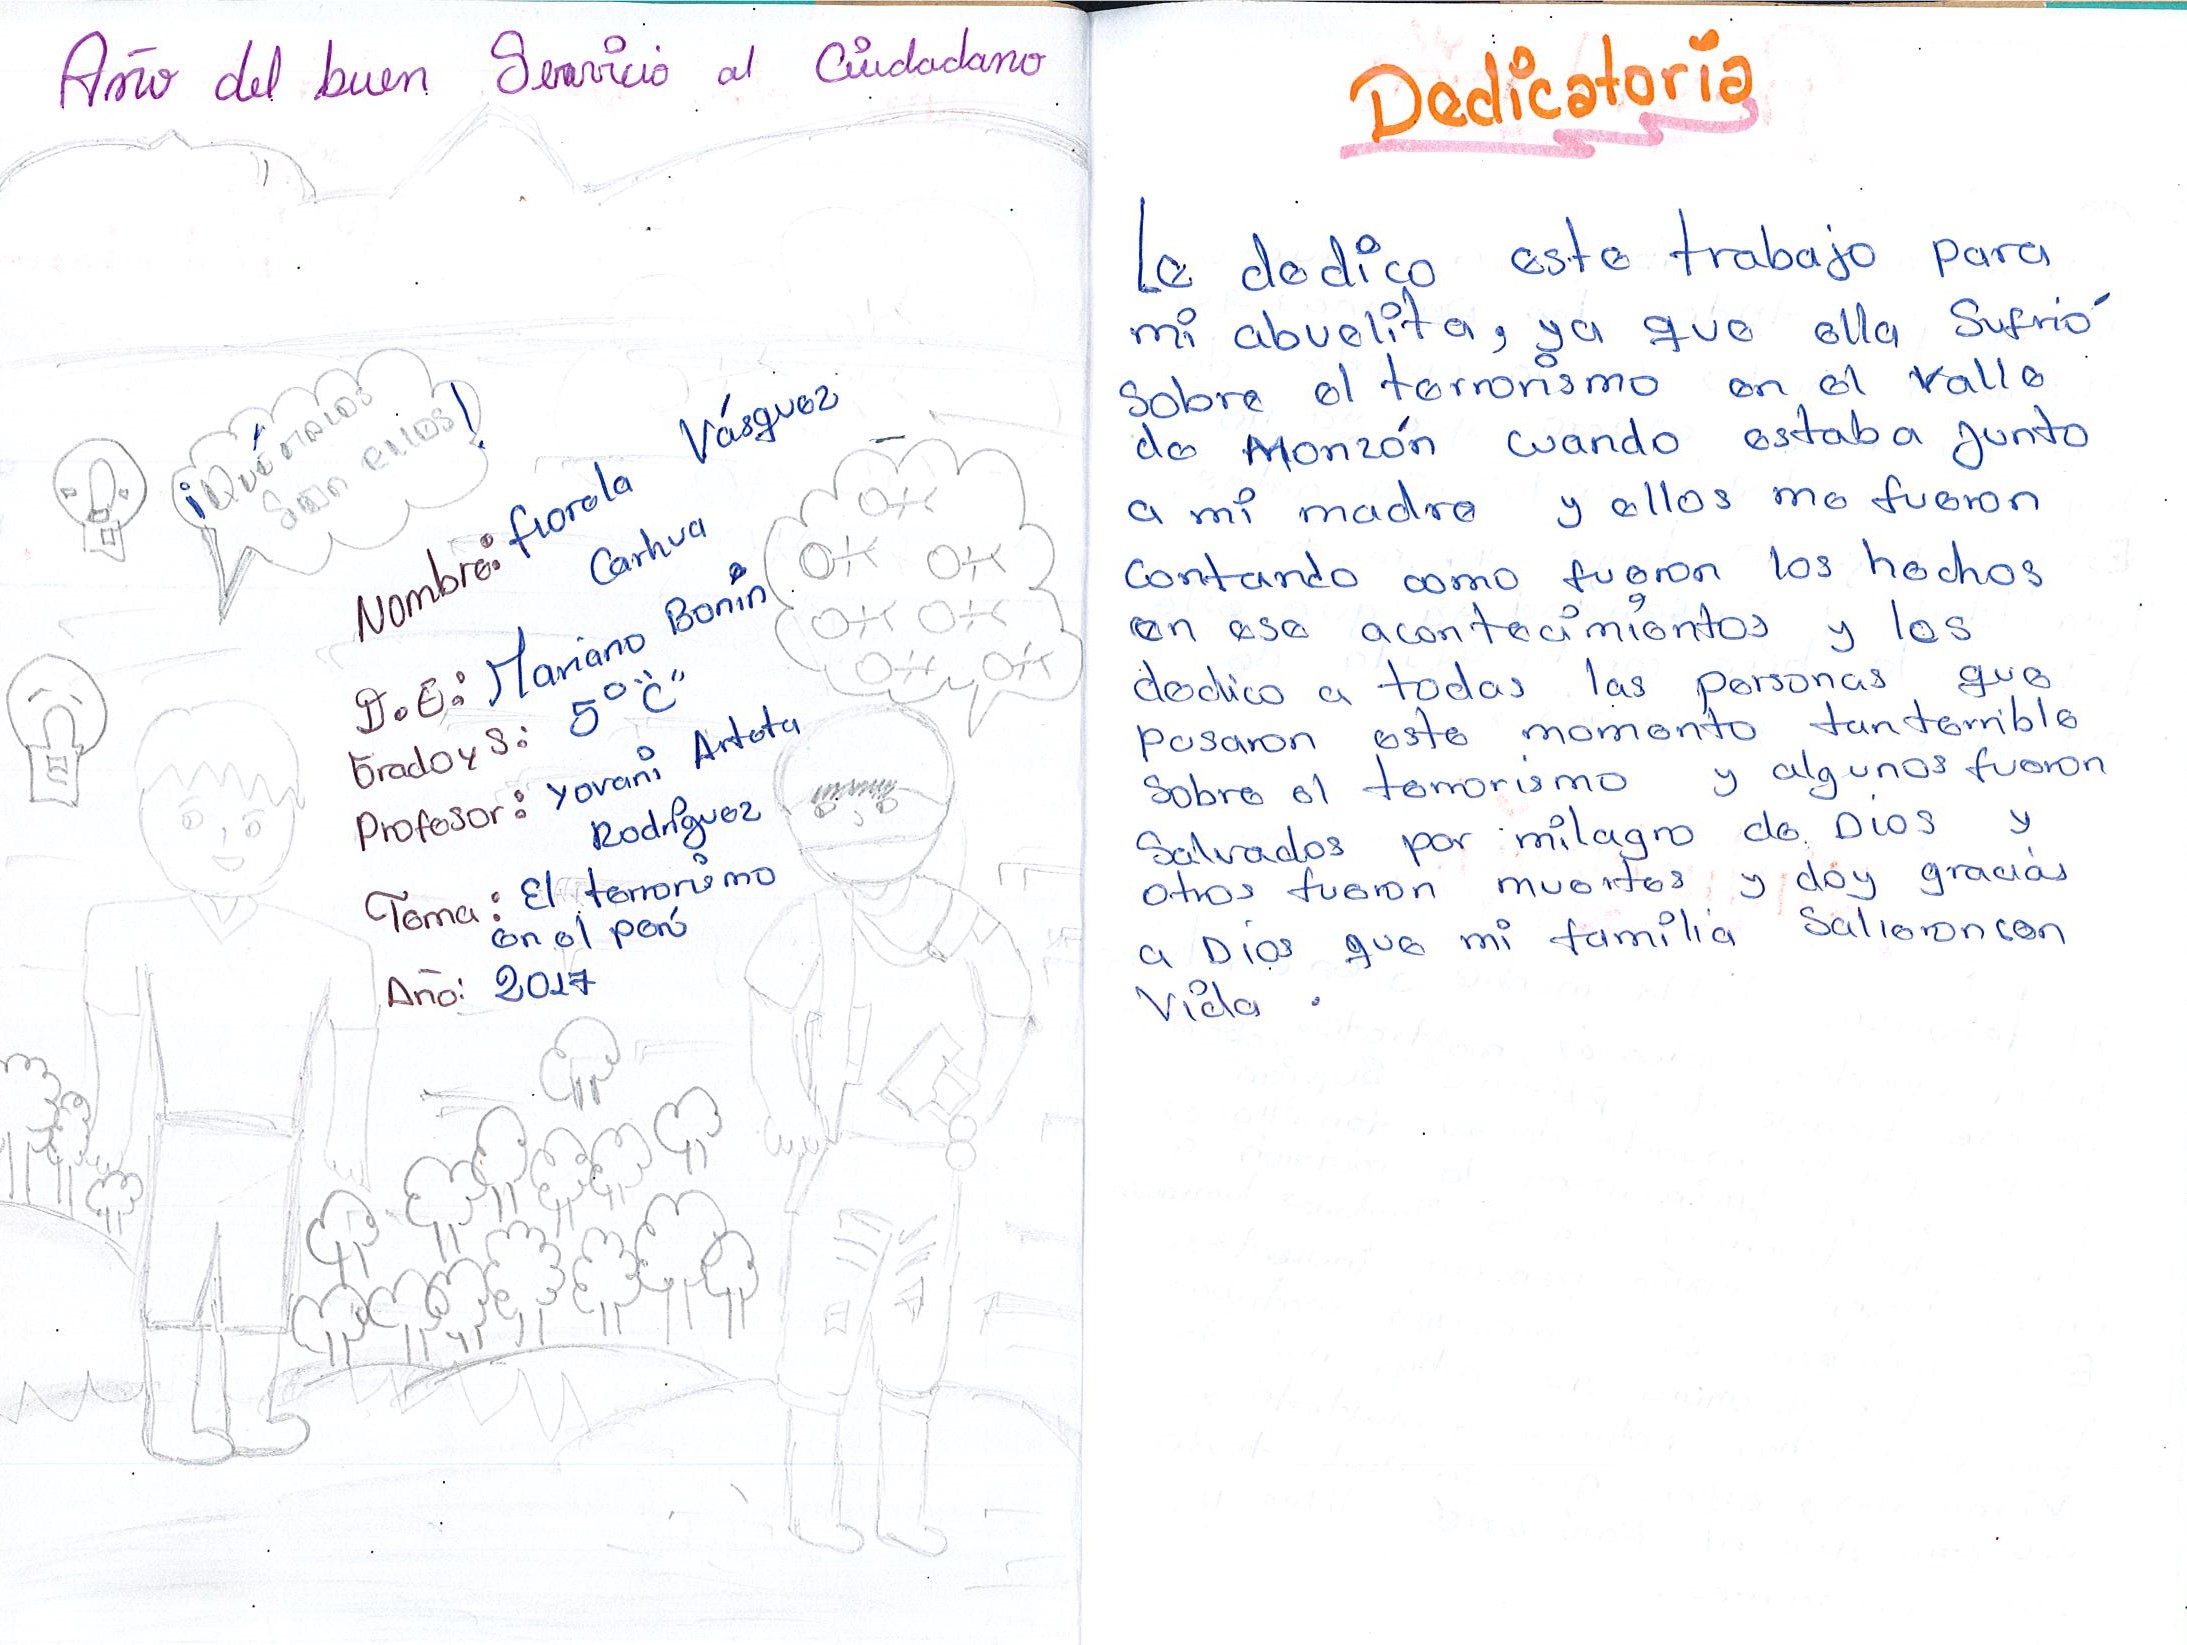 Año del buen Servicio al Ciudadano
¡Qué malos
son ellos!
Nombre: fiorela Vásquez
Carhua
I.E.: Mariano Bonin
Grado y S: 5° "C"
Profesor: Yovani Arteta
Rodríguez
Tema: El terrorismo
en el perú
Año: 2017
Dedicatoria
Le dedico este trabajo para
mi abuelita, ya que ella Sufrió
Sobre el terrorismo en el valle
de Monzón cuando estaba junto
a mi madre y ellos me fueron
contando como fueron los hechos
en ese acontecimientos y les
dedico a todas las personas que
pasaron este momento tan terrible
Sobre el terrorismo y algunos fueron
Salvados por milagro de Dios y
otros fueron muertos y doy gracias
a Dios que mi familia Salieron con
Vida.